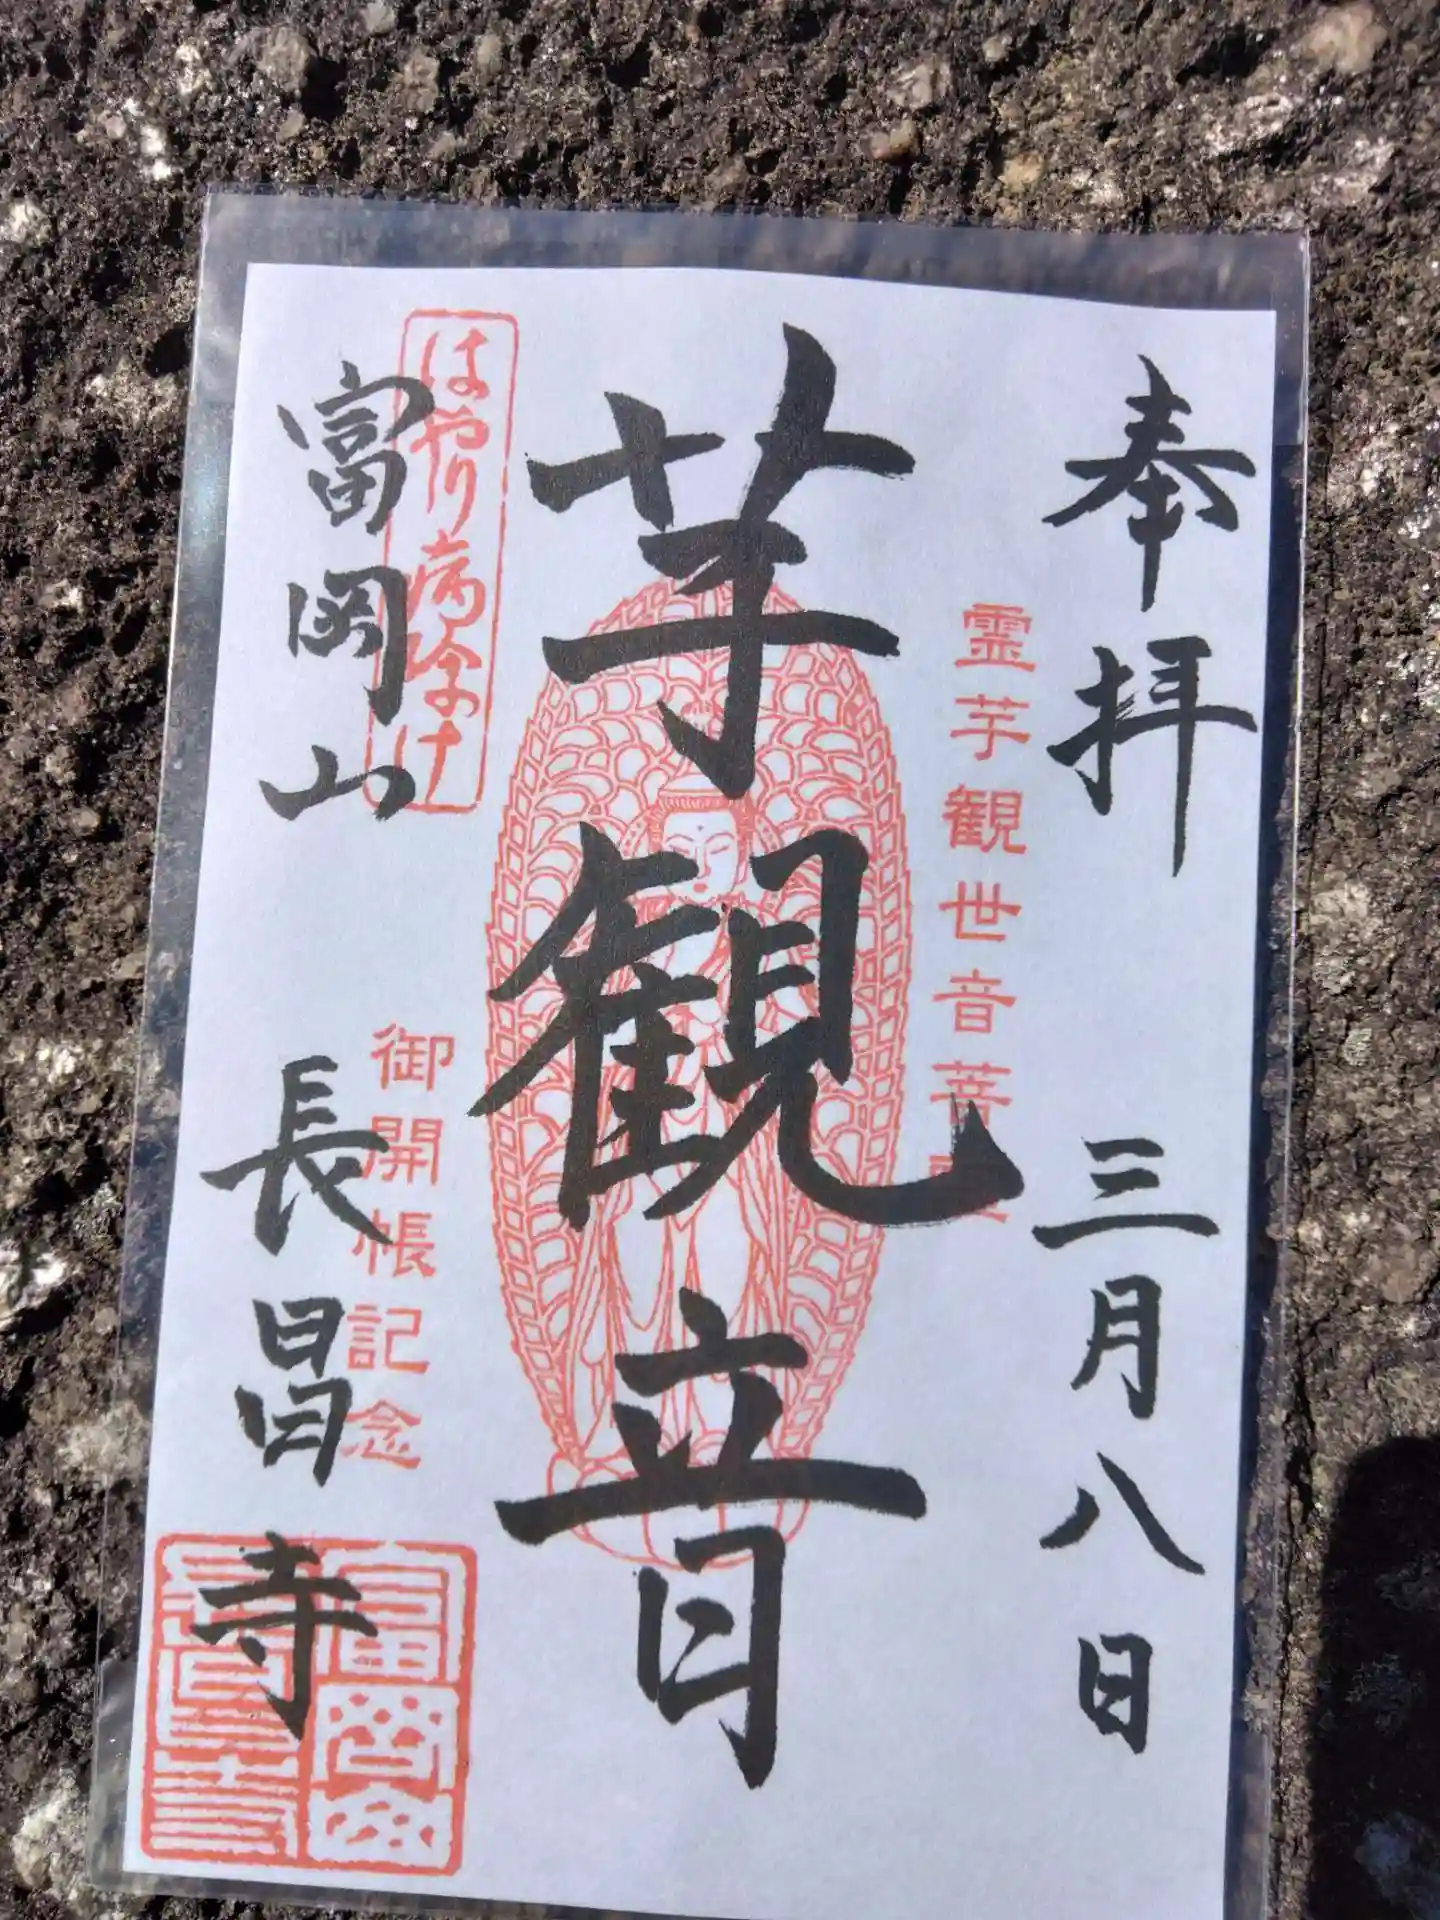 奉拝 三月八日
霊芋観世音菩
芋観音
はやり病除け
御開帳記念
富岡山 長昌寺
富岡山
長昌寺